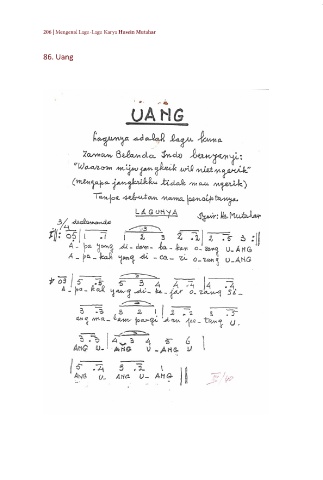 206 | Mengenal Lagu-Lagu Karya Husein Mutahar
86. Uang
UANG
Lagunya adalah lagu kuna
Zaman Belanda Indo bernyanyi:
"Waarom mijn jangkrik wil niet ngerik"
(mengapa jangkrikku tidak mau ngerik)
Tanpa sebutan nama penciptanya.
LAGUNYA
Syair: Hs. Mutahar
3/4
A - pa yang di-dam-ba-kan o-rang U-ANG
A - pa-kah yang di-ca-ri o-rang U-ANG
A - pa-kah yang di-ke-jar o-rang si-
ang ma-lam pagi dan pe-tang U.
ANG U- ANG U-ANG U
ANG U- ANG U-ANG